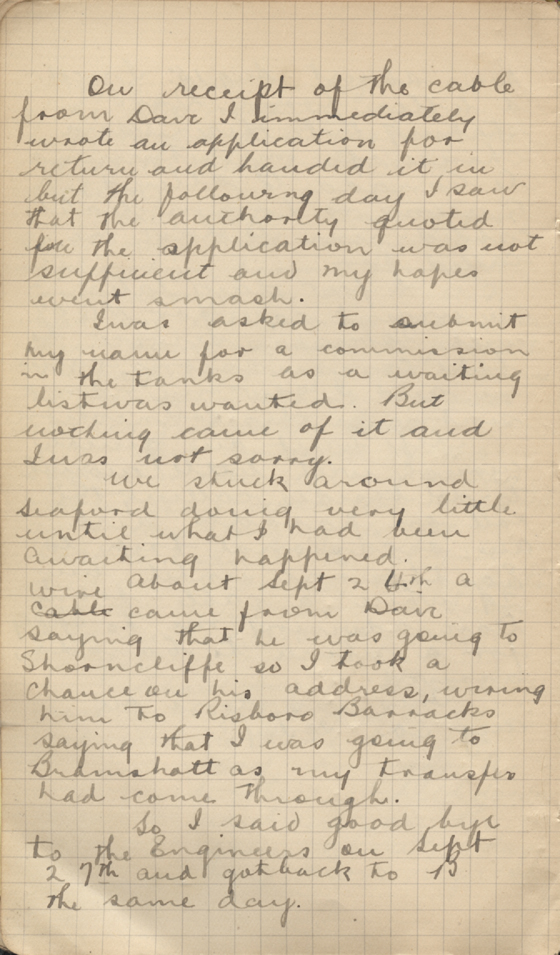 On receipt of the cable
from Dave I immediately
wrote an application for
return and handed it in
but the following day I saw
that the authority quoted
for the application was not
sufficient and my hopes
went smash.
I was asked to submit
my name for a commission
in the tanks as a waiting
list was wanted. But
nothing came of it and
I was not sorry.
We stuck around
Seaford doing very little
until what I had been
awaiting happened.
About Sept 24th a
wire
cable came from Dave
saying that he was going to
Shorncliffe so I took a
chance on his address, wiring
him to Risboro Barracks
saying that I was going to
Bramshott as my transfer
had come through.
So I said good bye
to the Engineers on Sept
27th and got back to B
the same day.